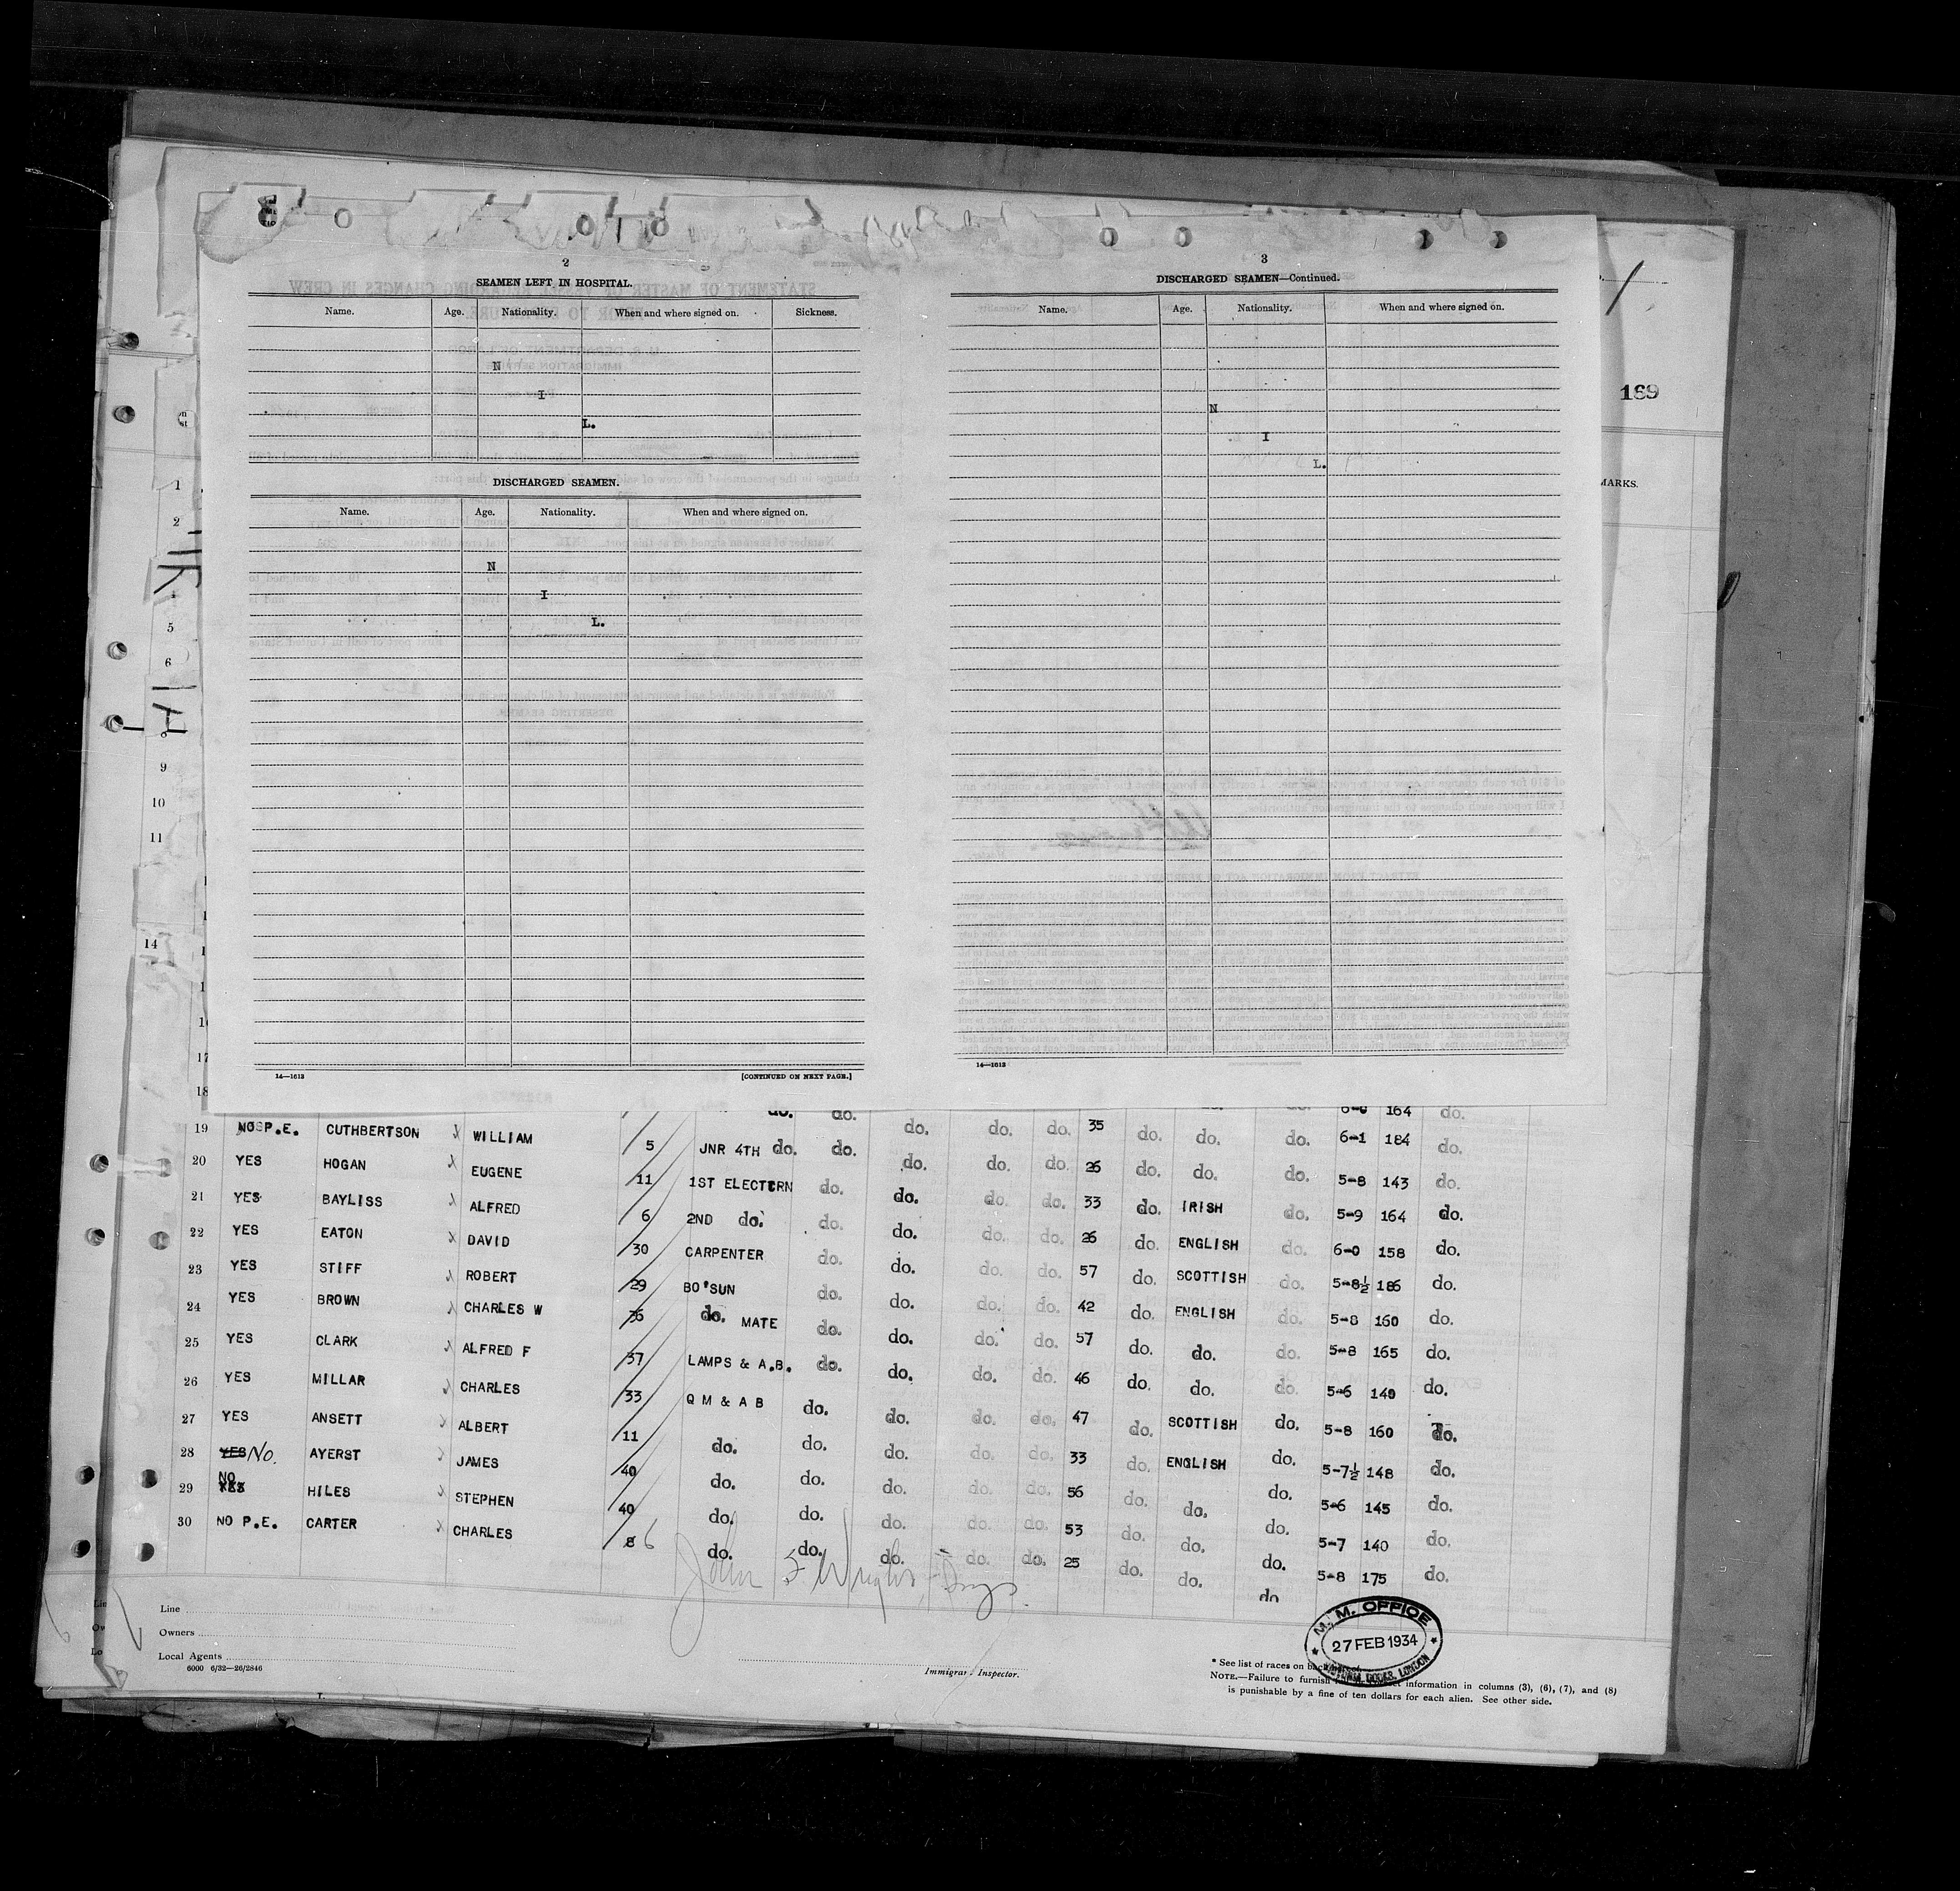 2
SEAMEN LEFT IN HOSPITAL.
Name. Age. Nationality. When and where signed on. Sickness.
N
I
L.
DISCHARGED SEAMEN.
Name. Age. Nationality. When and where signed on.
N
I
L.
14—1613 [CONTINUED ON NEXT PAGE.]
3
DISCHARGED SEAMEN—Continued.
Name. Age. Nationality. When and where signed on.
N
I
L.
14—1613
169
MARKS.
1
2
5
6
9
10
11
14
17
18 do. do. 6-0 164 do.
19 NO P.E. CUTHBERTSON WILLIAM 5 JNR 4TH do. do. do. do. do. 35 do. do. do. 6-1 184 do.
20 YES HOGAN EUGENE 11 1ST ELECTCRN do. do. do. do. 26 do. do. do. 5-8 143 do.
21 YES BAYLISS ALFRED 6 2ND do. do. do. do. do. 33 do. IRISH do. 5-9 164 do.
22 YES EATON DAVID 30 CARPENTER do. do. do. do. 26 do. ENGLISH do. 6-0 158 do.
23 YES STIFF ROBERT 29 BO'SUN do. do. do. do. 57 do. SCOTTISH do. 5-8½ 186 do.
24 YES BROWN CHARLES W 36 do. MATE do. do. do. do. 42 do. ENGLISH do. 5-8 160 do.
25 YES CLARK ALFRED F 37 LAMPS & A.B. do. do. do. do. 57 do. do. do. 5-8 165 do.
26 YES MILLAR CHARLES 33 Q M & A B do. do. do. do. 46 do. do. do. 5-6 140 do.
27 YES ANSETT ALBERT 11 do. do. do. do. do. 47 do. SCOTTISH do. 5-8 160 do.
28 YES No. AYERST JAMES 40 do. do. do. do. do. 33 do. ENGLISH do. 5-7½ 148 do.
29 NO YES HILES STEPHEN 40 do. do. do. do. do. 56 do. do. do. 5-6 145 do.
30 NO P.E. CARTER CHARLES 8 6 do. do. do. do. do. 53 do. do. do. 5-7 140 do.
25 do. do. do. 5-8 175 do.
John
Line
Owners
Local Agents
6000 6/32—26/2846
Immigrant Inspector.
M. M. OFFICE
27 FEB 1934
DOCKS, LONDON
* See list of races on back
NOTE.—Failure to furnish information in columns (3), (6), (7), and (8)
is punishable by a fine of ten dollars for each alien. See other side.